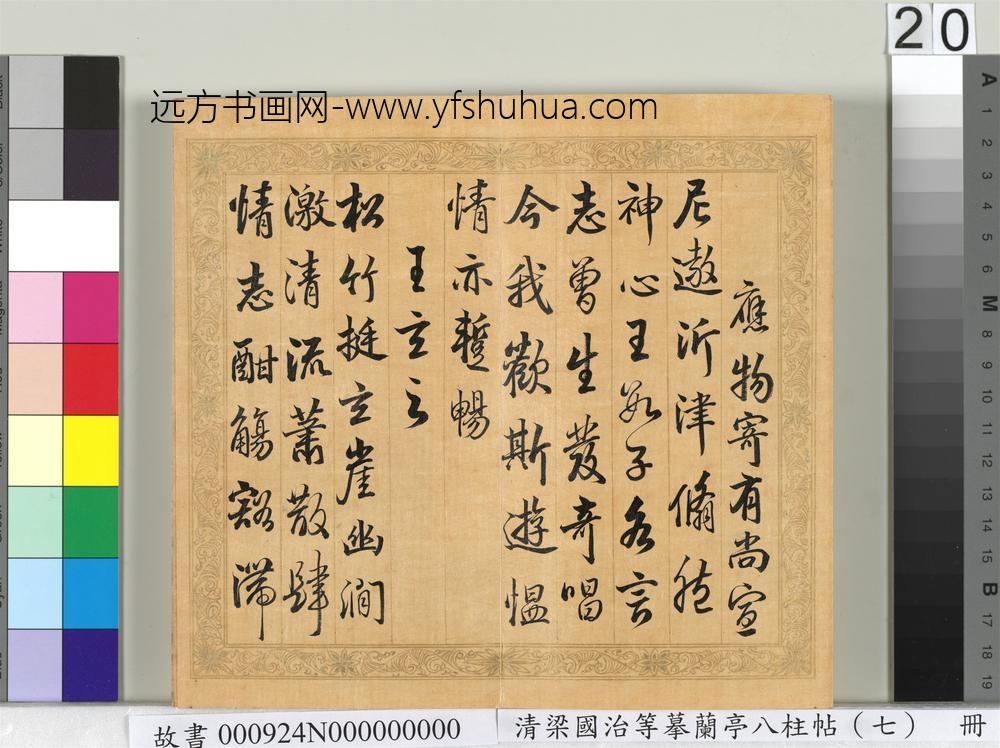 20
远方书画网-www.yfshuhua.com
應物寄有尚宣
尼遨沂津翛然
神心王數子各言
志曾生發奇唱
今我歡斯遊慍
情亦蹔暢
王玄之
松竹挺玄崖幽澗
激清流蕭散肆
情志酣觴豁滯
故書 000924N000000000
清梁國治等摹蘭亭八柱帖（七） 冊
A
1
2
3
4
5
6
M
8
9
10
11
12
13
14
15
B
17
18
19